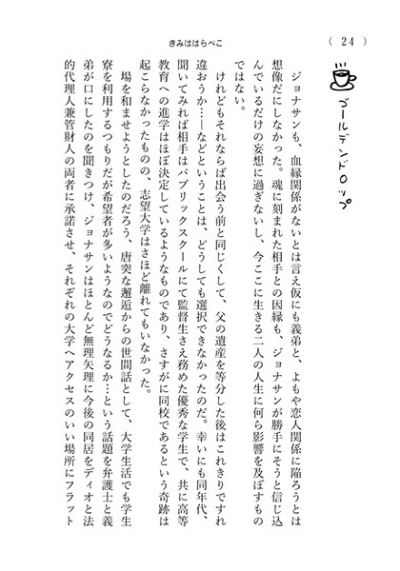 きみははらぺこ
( 24 )
ゴールデンドロップ
ジョナサンも、血縁関係がないとは言え仮にも義弟と、よもや恋人関係に陥ろうとは
想像だにしなかった。魂に刻まれた相手との因縁も、ジョナサンが勝手にそうと信じ込
んでいるだけの妄想に過ぎないし、今ここに生きる二人の人生に何ら影響を及ぼすもの
ではない。
けれどもそれならば出会う前と同じくして、父の遺産を等分した後はこれきりですれ
違おうか…―などということは、どうしても選択できなかったのだ。幸いにも同年代、
聞いてみれば相手はパブリックスクールにて監督生さえ務めた優秀な学生で、共に高等
教育への進学はほぼ決定しているようなものであり、さすがに同校であるという奇跡は
起こらなかったものの、志望大学はさほど離れてもいなかった。
場を和ませようとしたのだろう、唐突な邂逅からの世間話として、大学生活でも学生
寮を利用するつもりだが希望者が多いようなのでどうなるか…という話題を弁護士と義
弟が口にしたのを聞きつけ、ジョナサンはほとんど無理矢理に今後の同居をディオと法
的代理人兼管財人の両者に承諾させ、それぞれの大学へアクセスのいい場所にフラット